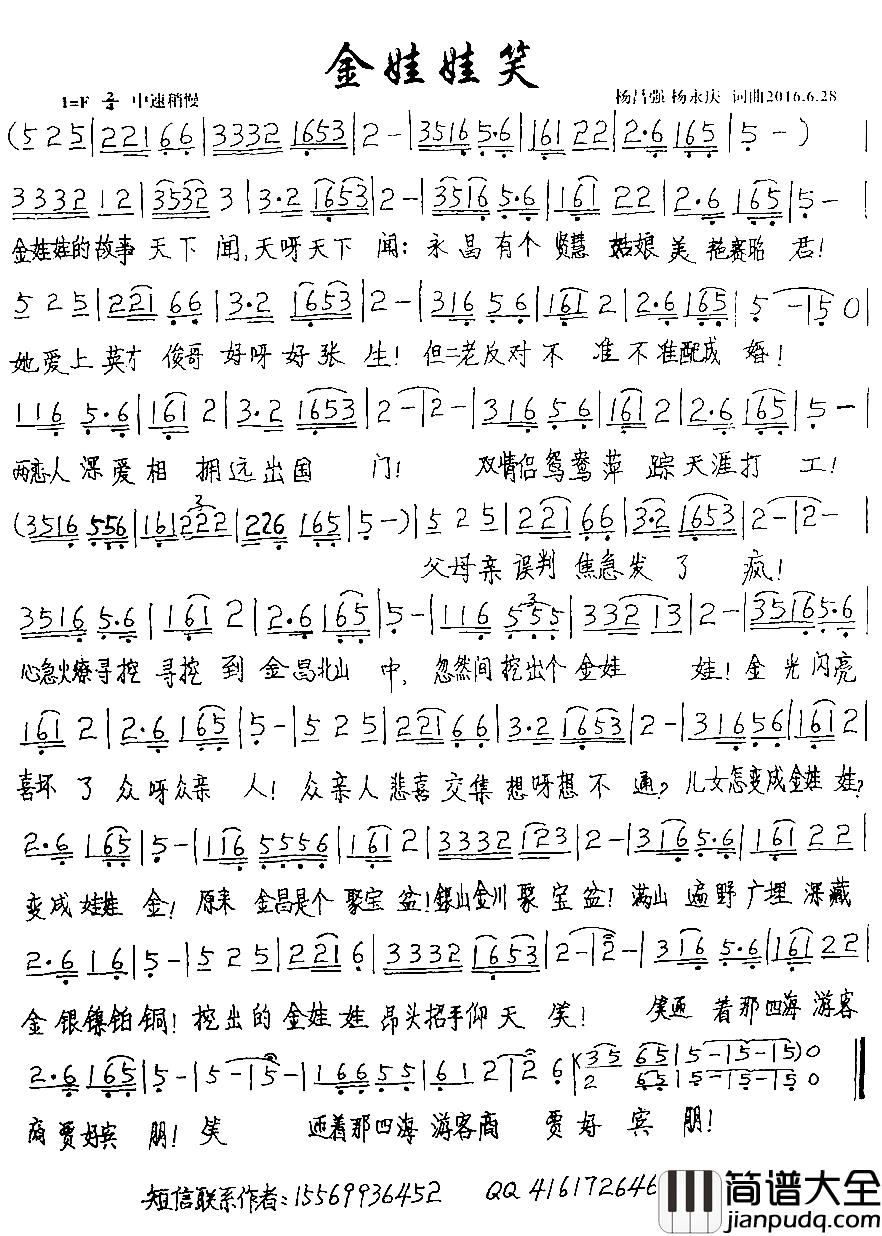 金娃娃笑
1=F 2/4 中速稍慢 杨昌强 杨永庆 词曲2016.6.28
(5 2 5|221 66|3332 1653|2-|3516 5·6|161 22|2·6 165|5-) |
3332 12|3532 3|3·2 1653|2-|3516 5·6|161 22|2·6 165|5-|
金娃娃的故事 天下闻,天呀天下闻:永昌有个贤慧姑娘美艳赛昭君!
5 2 5|221 66|3·2 1653|2-|316 56|161 2|2·6 165|5-|50
她爱上英才俊哥好呀好张生!但二老反对不准不准配成婚!
116 5·6|161 2|3·2 1653|2-|2-|316 56|161 2|2·6 165|5-|
两恋人深爱相拥远出国门!双情侣鸳鸯萍踪天涯打工!
(3516 556|161 222|226 165|5-)|5 2 5|221 66|3·2 1653|2-|2-|
父母亲误判焦急发了疯!
3516 5·6|161 2|2·6 165|5-|116 555|332 13|2-|3516 5·6
心急火燎寻挖寻挖到金昌北山中,忽然间挖出个金娃娃!金光闪亮
161 2|2·6 165|5-|5 2 5|221 66|3·2 1653|2-|31656|161 2|
喜坏了众呀众亲人!众亲人悲喜交集想呀想不通?儿女怎变成金娃娃?
2·6 165|5-|116 5556|161 2|3332 123|2-|316 5·6|161 22|
变成娃娃金!原来金昌是个聚宝盆!银山金川聚宝盆!满山遍野广埋深藏
2·6 16|5-|5 2 5|221 6|3332 1653|2-|2-|316 5·6|161 22|
金银镍铂铜!挖出的金娃娃昂头招手仰天笑!笑迎着那四海游客
2·6 165|5-|5-|5-|16655|61 2|2 6|35 65|5-|5-|5)0
2 65|5-|5-|50
商贾好宾朋!笑迎着那四海游客商贾好宾朋!
短信联系作者:15569936452 QQ 416172646
简谱大全
jianpudq.com